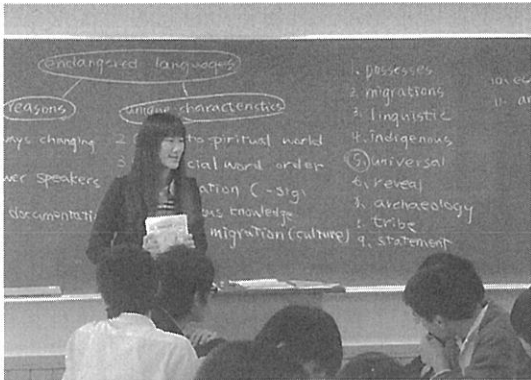 endangered languages
reasons
unique characteristics
ways changing
2
to spiritual world
3
cial word order
wer speakers
ation (-sign
documentati
ous knowledge
migration (culture)
1. possesses
2. migrations
3. linguistic
4. indigenous
5 universal
6. reveal
7. archaeology
8. tribe
9. statement